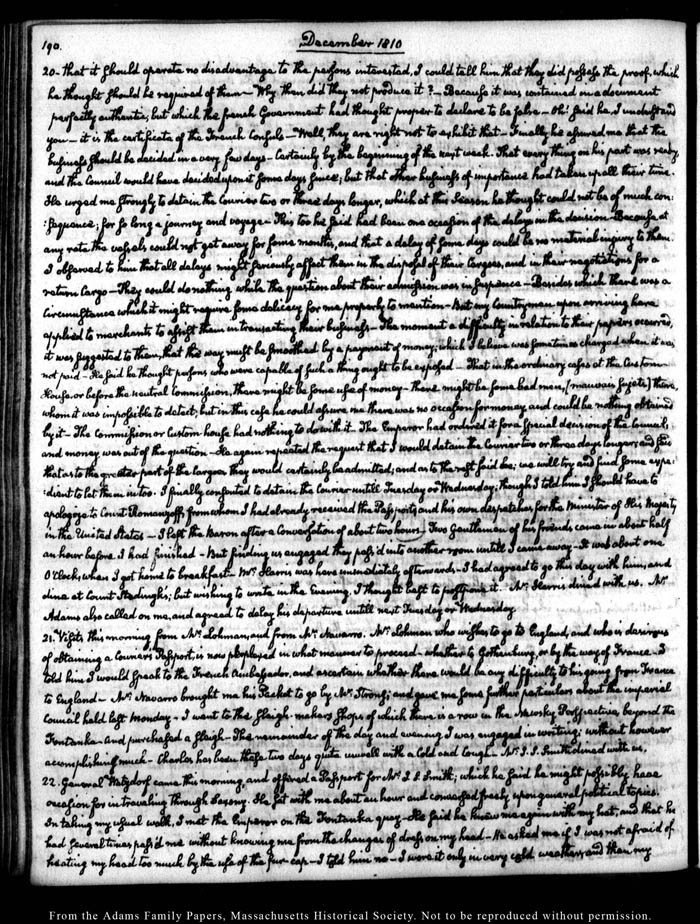 190.
December 1810
20. that it should operate no disadvantage to the persons interested, I could tell him that they did possess the proof, which
he thought should be required of them — Why then did they not produce it? — Because it was contained in a document
perfectly authentic, but which the French Government had thought proper to declare to be false — Oh! said he, I understand
you — it is the certificate of the French Consuls — Well, they are right not to exhibit that — Finally he assured me that the
business should be decided in a very few days — Certainly by the beginning of the next week. That every thing on his part was ready,
and the Council would have decided upon it some days since; but that other business of importance had taken up all their time.
He urged me strongly to detain the Courier two or three days longer, which at this Season he thought could not be of much con:
:sequence; for so long a journey and voyage — This too he said had been one occasion of the delays in the decision — Because at
any rate the vessels could not get away for some months, and that a delay of some days could be no material injury to them.
I observed to him that all delays might seriously affect them in the disposal of their Cargoes, and in their negotiations for a
return Cargo — They could do nothing while the question about their admission was in suspence — Besides which there was a
circumstance which it might require some delicacy for me properly to mention — But my Countrymen upon arriving here
applied to merchants to assist them in transacting their business — The moment a difficulty in relation to their papers occurred,
it was suggested to them, that this way must be smoothed by a payment of money, which I believe was sometimes charged when it was
not paid — He said he thought persons who were capable of such a thing ought to be exposed — That in the ordinary cases at the Custom
House, or before the neutral Commission, there might be some use of money — there might be some bad men, (mauvais sujets) there,
whom it was impossible to detect; but in this case he could assure me there was no occasion for money and could be nothing obtained
by it — The Commission or Custom-house had nothing to do with it — The Emperor had ordered it for a special decision of the Council,
and money was out of the question — He again repeated the request that I would detain the Courier two or three days longer; and said
that as to the greater part of the cargoes they would certainly be admitted; and as to the rest said he; we will try and find some expe:
:dient to let them in too. I finally consented to detain the Courier untill Tuesday or Wednesday; though I told him I should have to
apologize to Count Romanzoff, from whom I had already received the Passports, and his own despatches for the Minister of His Majesty
in the United States — I left the Baron after a Conversation of about two hours. Two Gentlemen of his friends came in about half
an hour before I had finished — But finding us engaged they pass'd into another room untill I came away — It was about one
O'Clock, when I got home to breakfast — Mr. Harris was here immediately afterwards — I had agreed to go this day with him, and
dine at Count Stedingk's; but wishing to write in the Evening, I thought best to postpone it. Mr. Harris dined with us. Mr.
Adams also called on me, and agreed to delay his departure untill next Tuesday or Wednesday.
21. Visits this morning from Mr. Lohman, and from Mr. Navarro. Mr. Lohman who wishes to go to England, and who is desirous
of obtaining a Courier's Passport, is now perplexed in what manner to proceed — whether to Gothenburg, or by the way of France. I
told him I would speak to the French Ambassador, and ascertain whether there would be any difficulty to his going from France
to England — Mr. Navarro brought me his Packet to go by Mr. Strong; and gave me some further particulars about the imperial
Council held last Monday — I went to the Sleigh-makers Shops of which there is a row in the Newsky Perspective, beyond the
Fontanka — And purchased a sleigh — The remainder of the day and evening I was engaged in writing; without however
accomplishing much — Charles has been these two days quite unwell with a Cold and Cough. Mr. J. S. Smith dined with us.
22. General Watzdorf came this morning, and offered a Passport for Mr. J. S. Smith; which he said he might possibly have
occasion for in traveling through Saxony. He sat with me about an hour and conversed freely upon general political topics.
In taking my usual walk, I met the Emperor on the Fontanka quay — He said he knew me again with my hat, and that he
had several times pass'd me without knowing me from the changes of dress on my head — He asked me if I was not afraid of
heating my head too much by the use of the fur-cap — I told him no — I wore it only in very cold weather; and then my
From the Adams Family Papers, Massachusetts Historical Society. Not to be reproduced without permission.